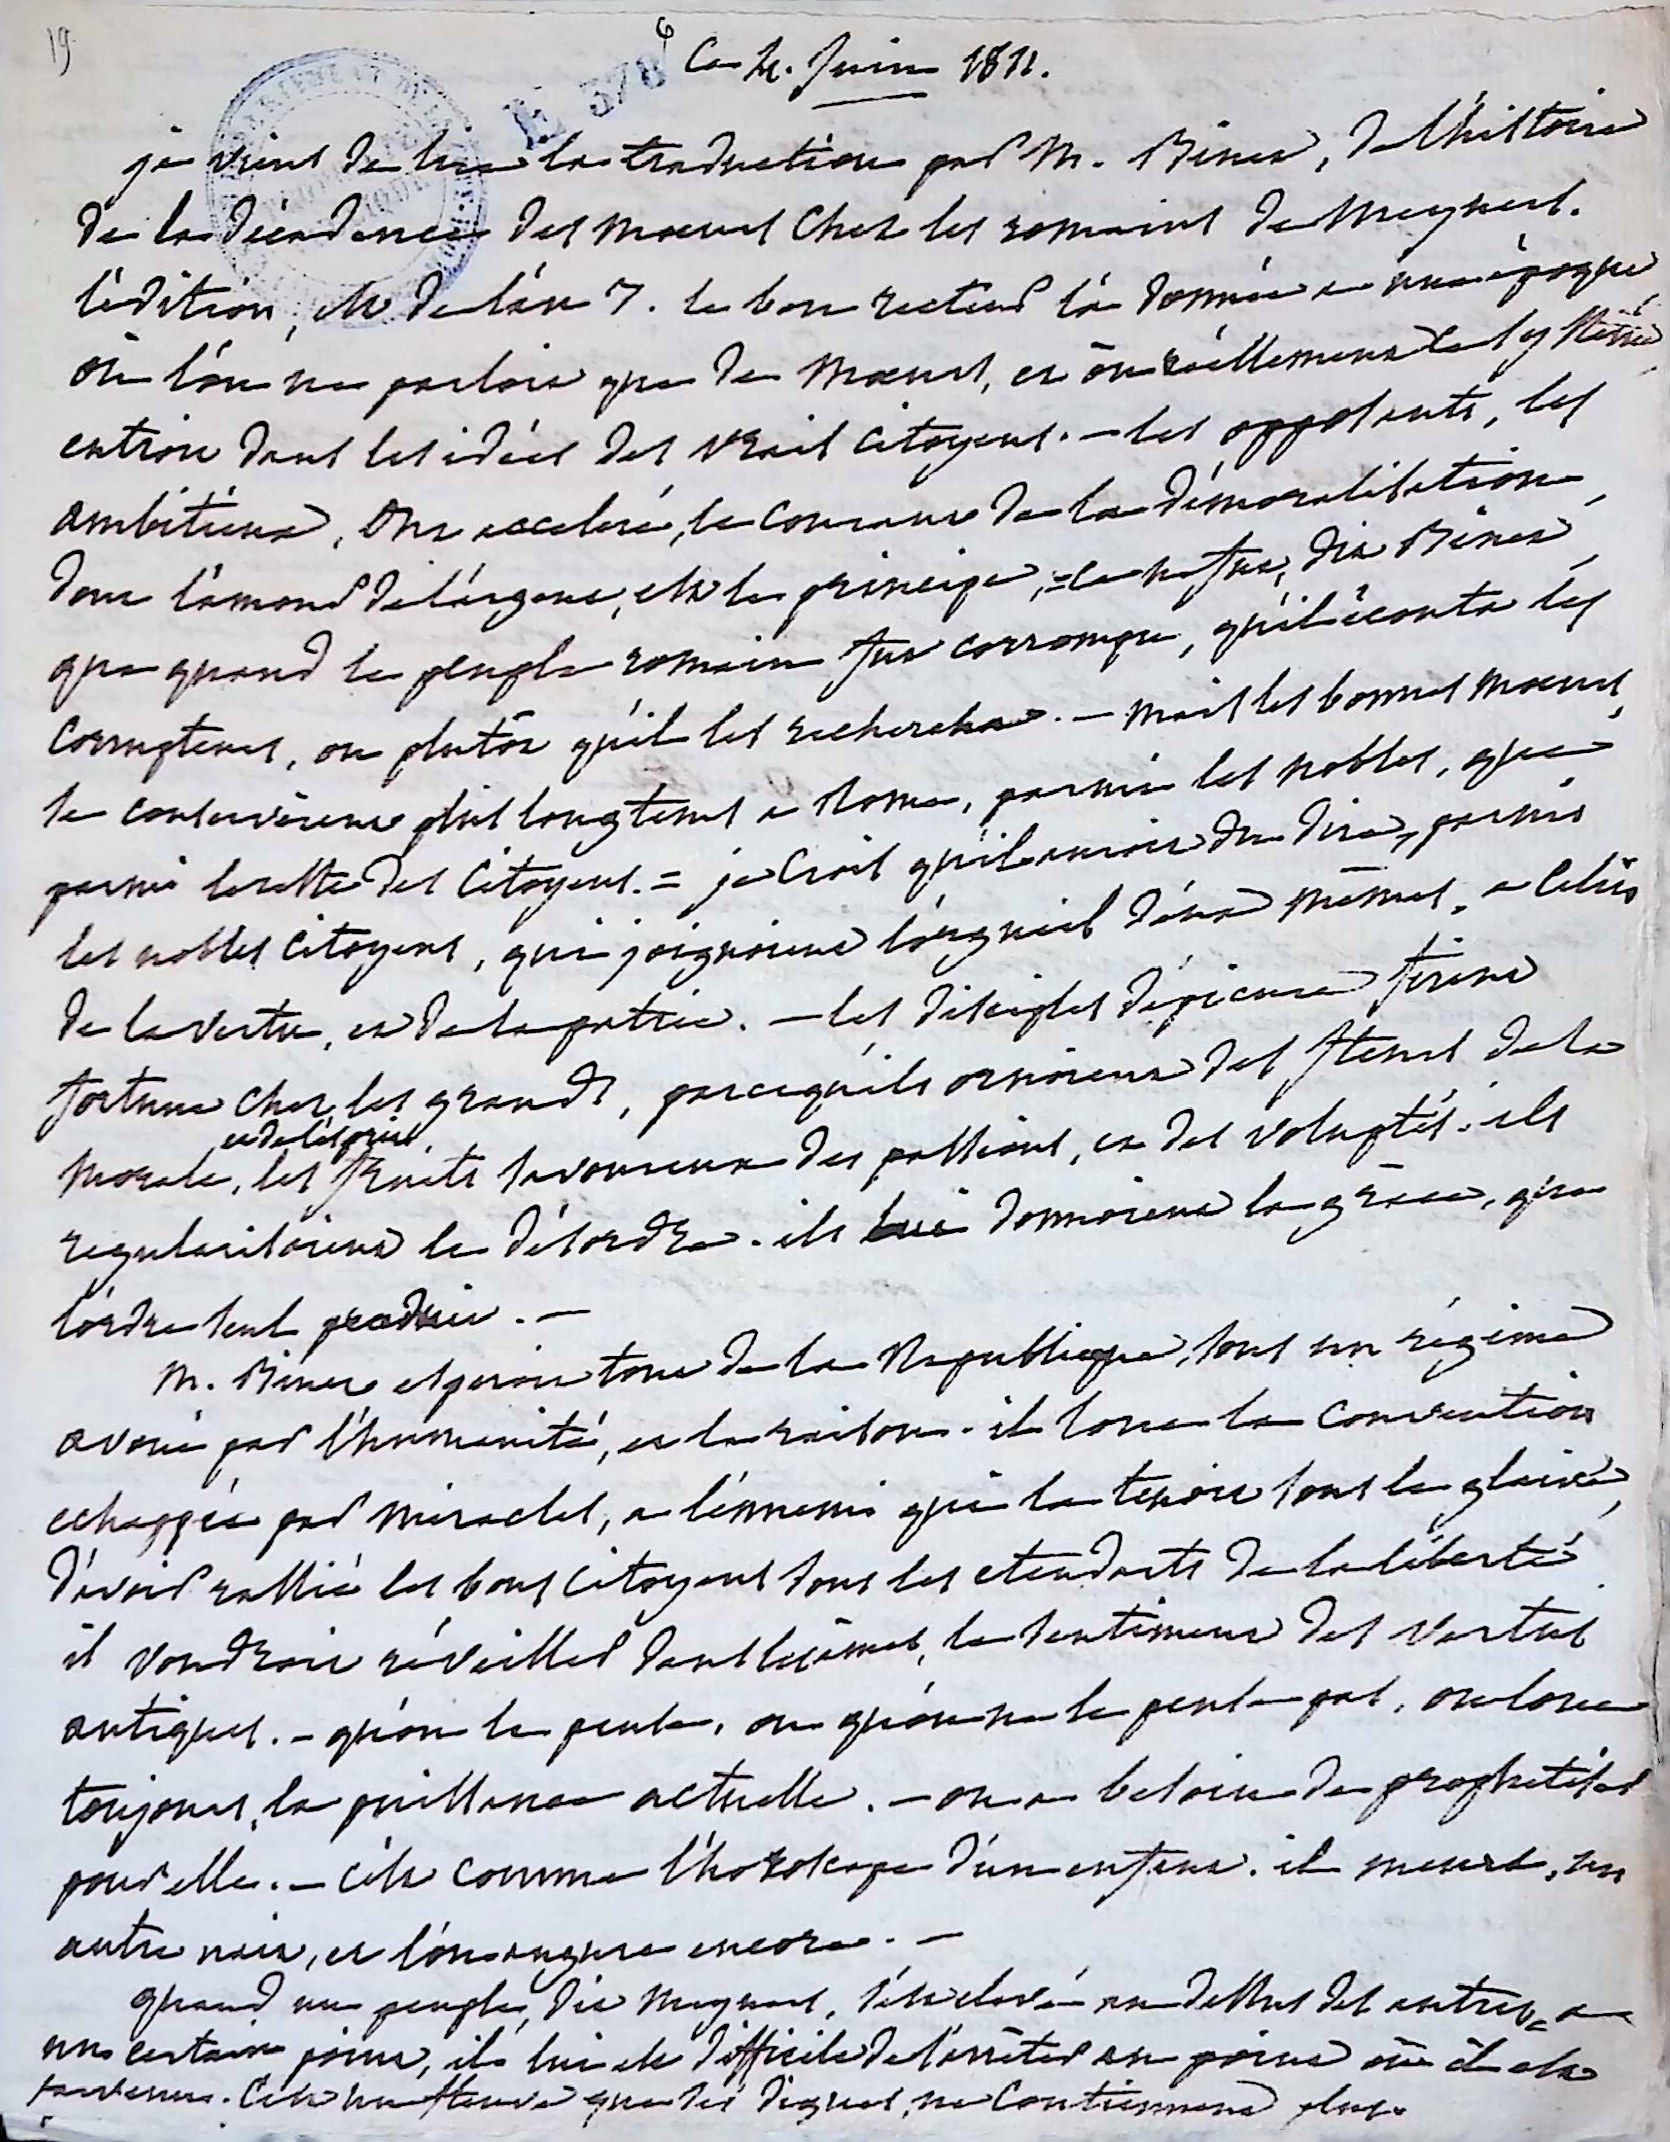 19
6
Ce 4. Juin 1811.
je viens de lire la traduction par M. Binet, de l'histoire
de la décadence des mœurs chez les romains de Meyners.
l'édition, est de l'an 7. le bon recteur l'a donnée a une époque
où l'on ne parloit que de mœurs, et où réellement le systême
entroit dans les idées des vrais citoyens. – les opposants, les
ambitieux, ont acceleré, le courant de la démoralisation,
dont l'amour de l'argent, est le principe, = ce ne fut, dit Binet,
que quand le peuple romain fut corrompu, qu'il écouta les
corrupteurs, ou plutôt qu'il les rechercha. – mais les bonnes mœurs,
se conservèrent plus longtems a Rome, parmi les nobles, que
parmi le reste des citoyens. = je crois qu'il auroit du dire, parmi
les nobles citoyens, qui joignoient l'orgueil d'eux mêmes, a celui
de la vertu, et de la patrie. – les disciples d'épicure firent
fortune chez les grands, parcequ'ils ornoient des fleurs de la
morale, et de l'esprit, les fruits savoureux des passions, et des voluptés. ils
regularisoient le désordre. ils lui donnoient la grace, que
l'ordre seul produit. –
M. Binet esperoit tout de la Republique, sous un régime
avoué par l'humanité, et la raison. il loue la convention
echappée par miracles, a l'ennemi qui la tenoit sous le glaive,
d'avoir rallié les bons citoyens sous les etendarts de la liberté
il voudroit réveiller dans les âmes, le sentiment des vertus
antiques. – qu'on le pense, ou qu'on ne le pense pas, on loue
toujours, la puissance actuelle. – on a besoin de prophetiser
pour elle. – c'est comme l'horoscope d'un enfant. il meurt, un
autre nait, et l'on augure encore. –
quand un peuple, dit Meyners, s'est elevé au dessus des autres, a
un certain point, il lui est difficile de s'arrêter au point où il est
parvenu. C'est un fleuve que des digues, ne contiennent plus.